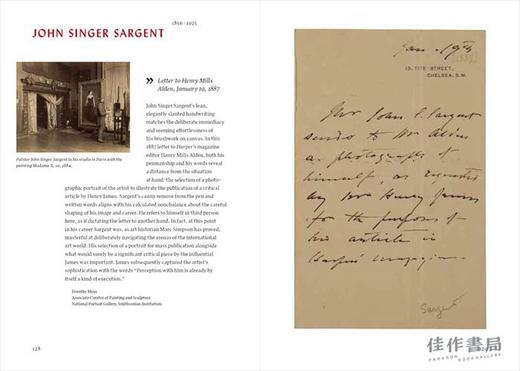 1856–1925
JOHN SINGER SARGENT
Painter John Singer Sargent in his studio in Paris with the
painting Madame X, ca. 1884.
» Letter to Henry Mills
Alden, January 19, 1887
John Singer Sargent's lean,
elegantly slanted handwriting
matches the deliberate immediacy
and seeming effortlessness of
his brushwork on canvas. In this
1887 letter to Harper's magazine
editor Henry Mills Alden, both his
penmanship and his words reveal
a distance from the situation
at hand: the selection of a photo-
graphic portrait of the artist to illustrate the publication of a critical
article by Henry James. Sargent's canny remove from the pen and
written words aligns with his calculated nonchalance about the careful
shaping of his image and career. He refers to himself in third person
here, as if dictating the letter to another hand. In fact, at this point
in his career Sargent was, as art historian Marc Simpson has proved,
masterful at deliberately navigating the arenas of the international
art world. His selection of a portrait for mass publication alongside
what would surely be a significant critical piece by the influential
James was important. James subsequently captured the artist's
sophistication with the words "Perception with him is already by
itself a kind of execution."
Dorothy Moss
Associate Curator of Painting and Sculpture
National Portrait Gallery, Smithsonian Institution.
128
Jan. 19th
13, TITE STREET,
CHELSEA. S.W.
Mr John S. Sargent
sends to Mr Alden
a photograph of
himself, as requested
by Mr Henry James
for the purpose of
his article in
Harper's magazine
Sargent
佳作書局
PARAGON BOOKGALLERY